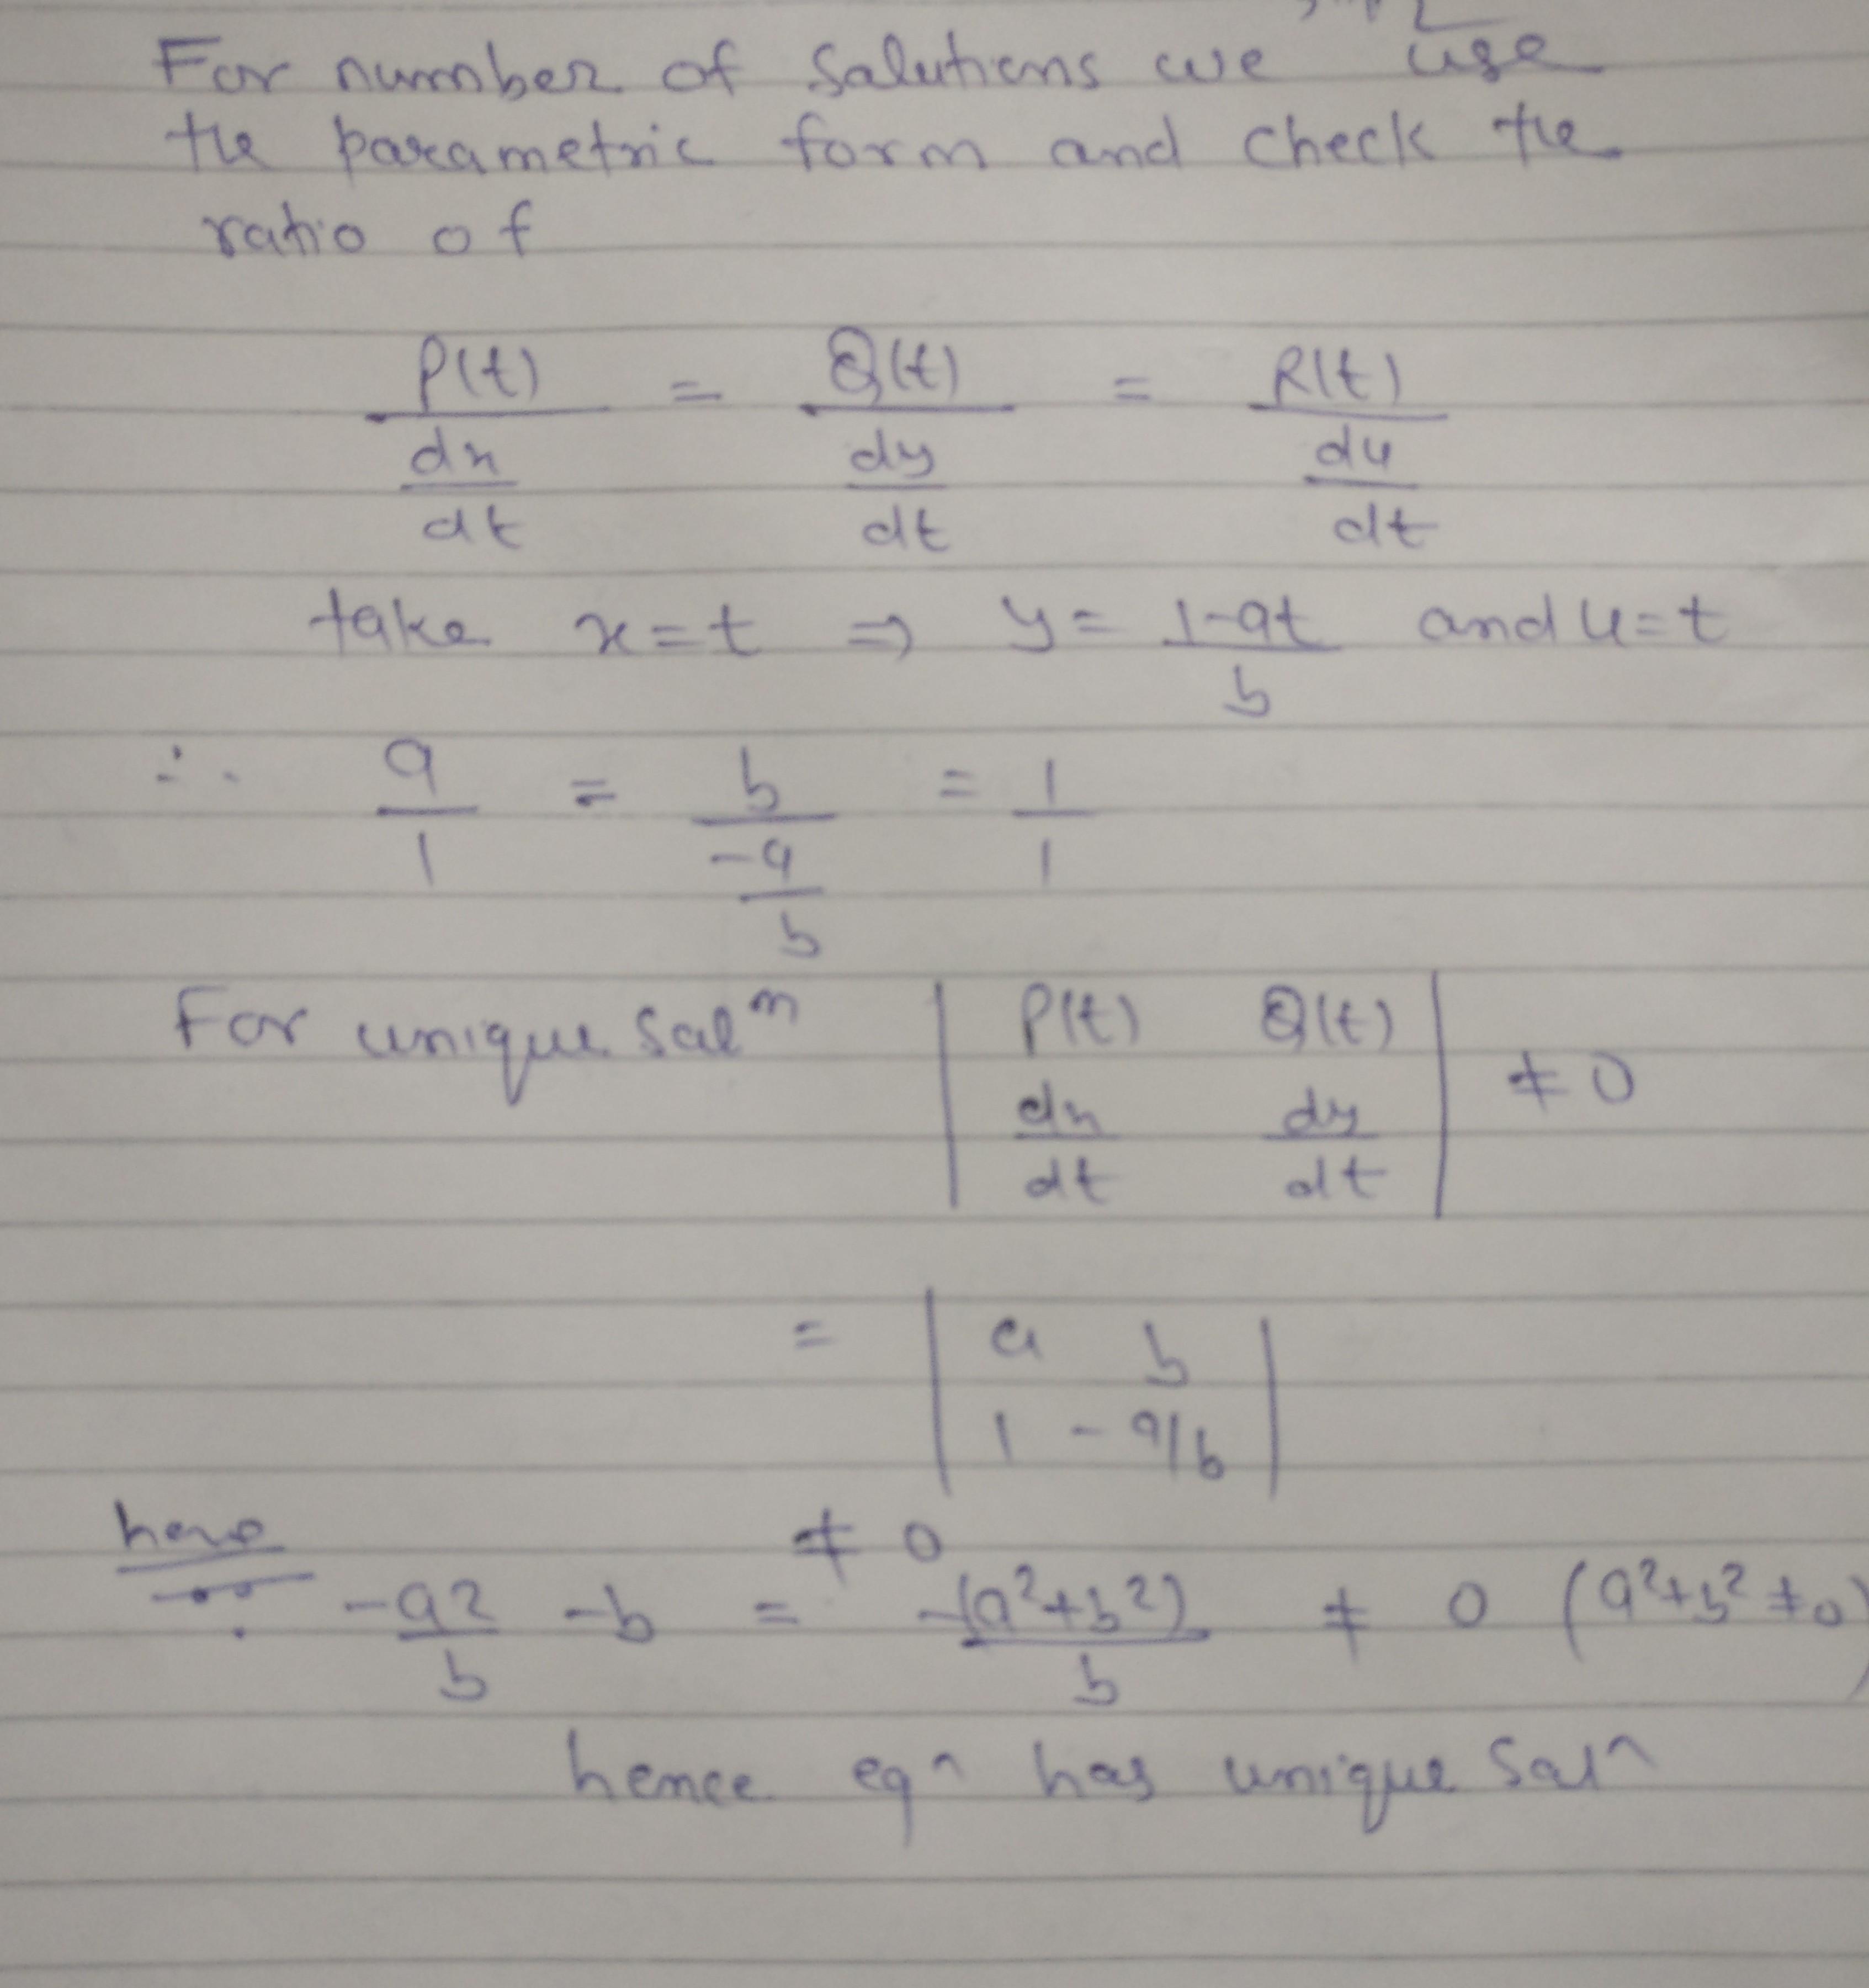 For number of Solutions we use
the parametric form and check the
ratio of
P(t)/(dx/dt) = Q(t)/(dy/dt) = R(t)/(du/dt)
take x=t ⇒ y= (1-at)/b and u=t
∴ a/1 = b/(-a/b) = 1/1
For unique Solⁿ | P(t) Q(t) | ≠ 0
| dx/dt dy/dt |
= | a b |
| 1 -a/b |
here ≠ 0
-a2/b -b = -(a²+b²)/b ≠ 0 (a²+b²≠0)
hence eqⁿ has unique Solⁿ